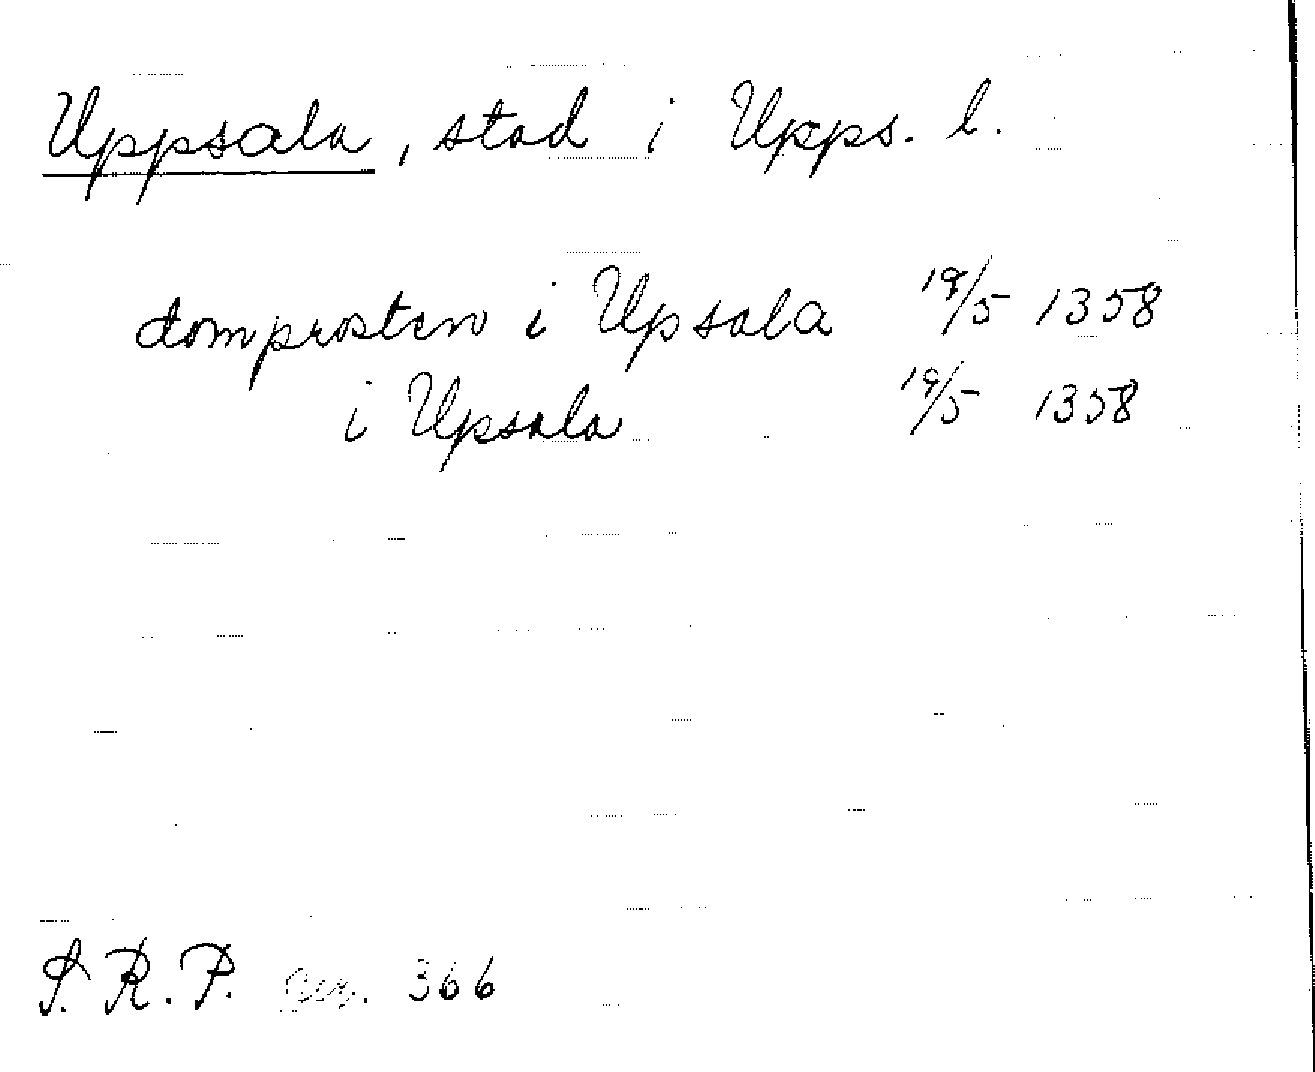 Uppsala, stad i Upps. l.
domprosten i Upsala 19/5 1358
i Upsala 19/5 1358
S. R. P. 366